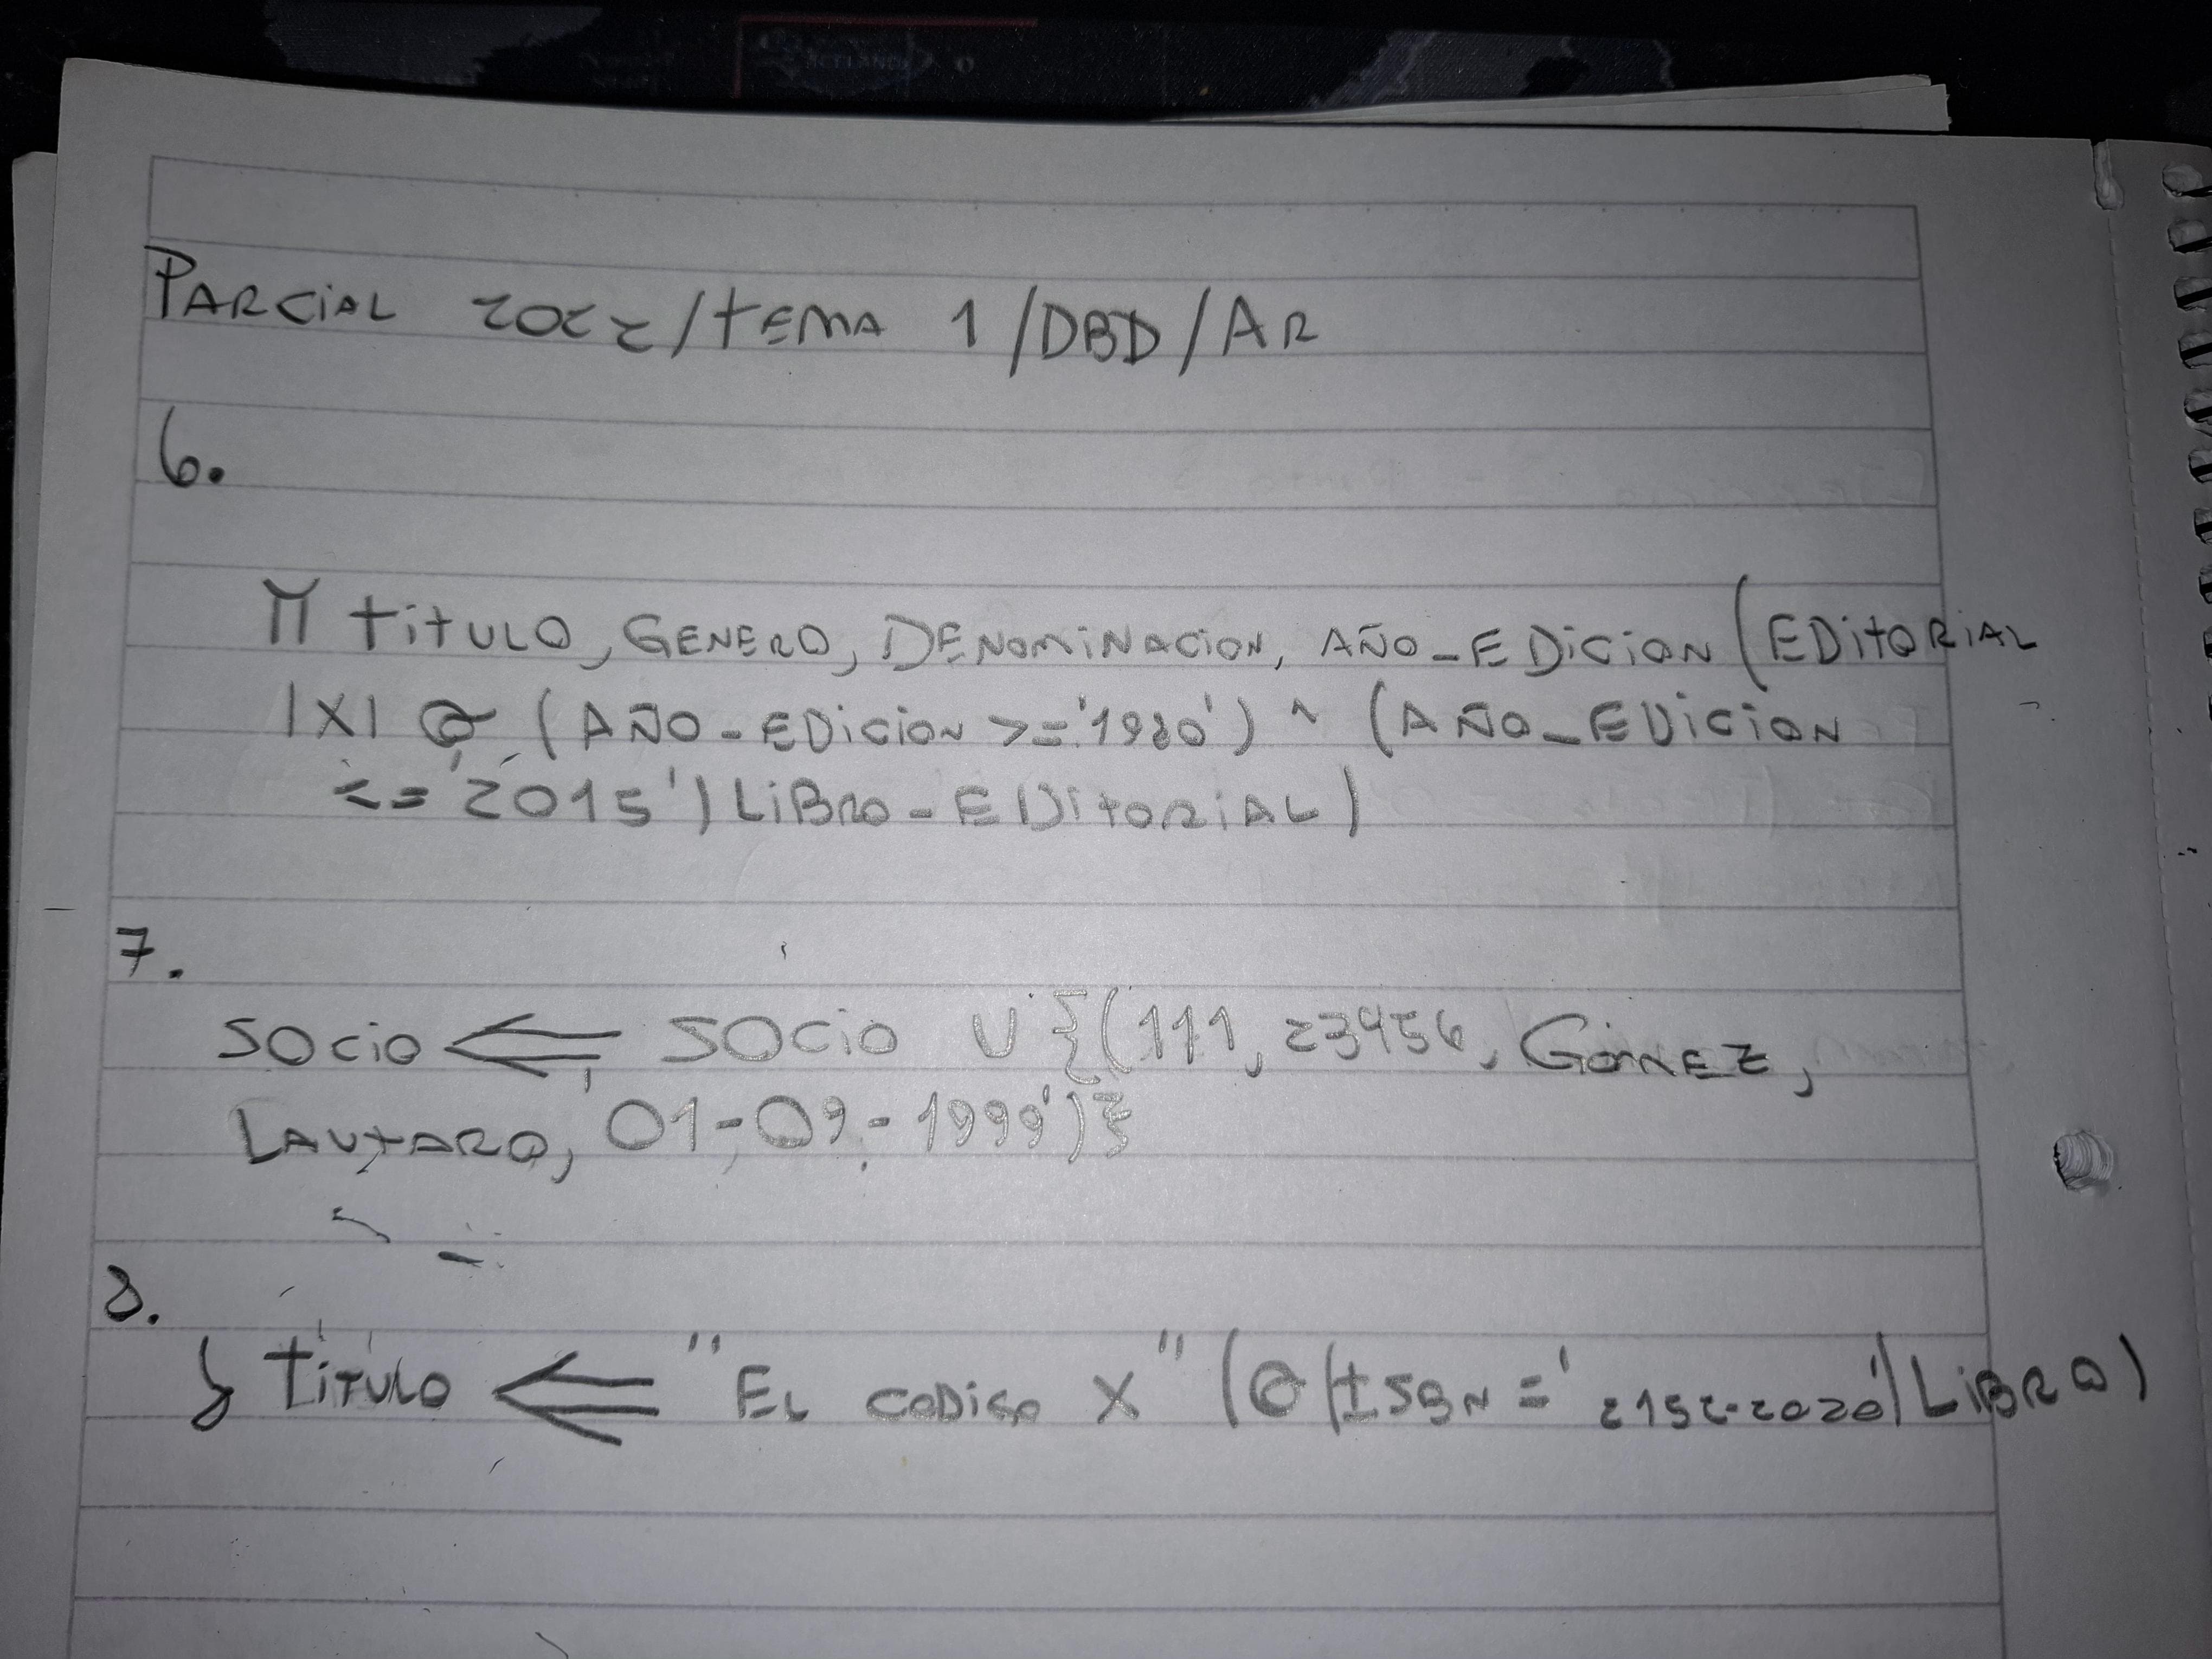 PARCIAL 2022/TEMA 1/DBD/AR
6.
Π TITULO, GENERO, DENOMINACION, AÑO_EDICION (EDITORIAL
|X| σ (AÑO_EDICION >= '1980') ^ (AÑO_EDICION
<= '2015') LIBRO-EDITORIAL)
7.
SOCIO ⇐ SOCIO U {(111, 23456, GOMEZ,
LAUTARO, '01-09-1999')}
8.
δ TITULO ⇐ "EL CODIGO X" (σ (ISBN = '2152-2020') LIBRO)